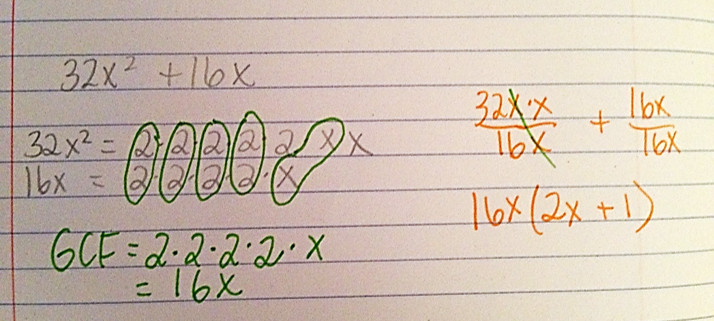 32x² + 16x
32x² = 2·2·2·2 2 x x
16x = 2·2·2·2·x
GCF = 2·2·2·2·x
= 16x
32x·x/16x + 16x/16x
16x(2x + 1)